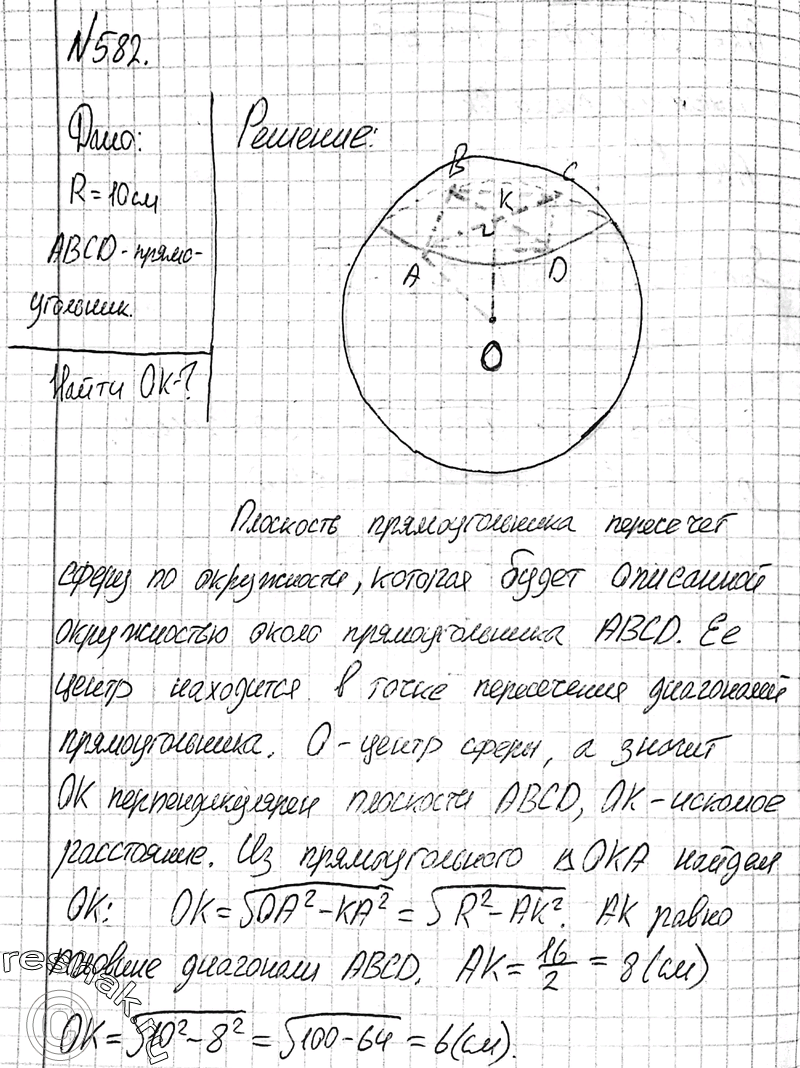 №582.
Дано:
R = 10 см
ABCD - прямо-
угольник.
Найти OK-?
Решение:
B
C
K
A
D
O
Плоскость прямоугольника пересечет
сферу по окружности, которая будет описанной
окружностью около прямоугольника ABCD. Ее
центр находится в точке пересечения диагоналей
прямоугольника. O - центр сферы, а значит
OK перпендикулярен плоскости ABCD, OK - искомое
расстояние. Из прямоугольного △OKA найдем
OK: OK = √(OA² - KA²) = √(R² - AK²). AK равно
половине диагонали ABCD. AK = 16/2 = 8 (см)
OK = √(10² - 8²) = √(100 - 64) = 6 (см).
reshak.ru